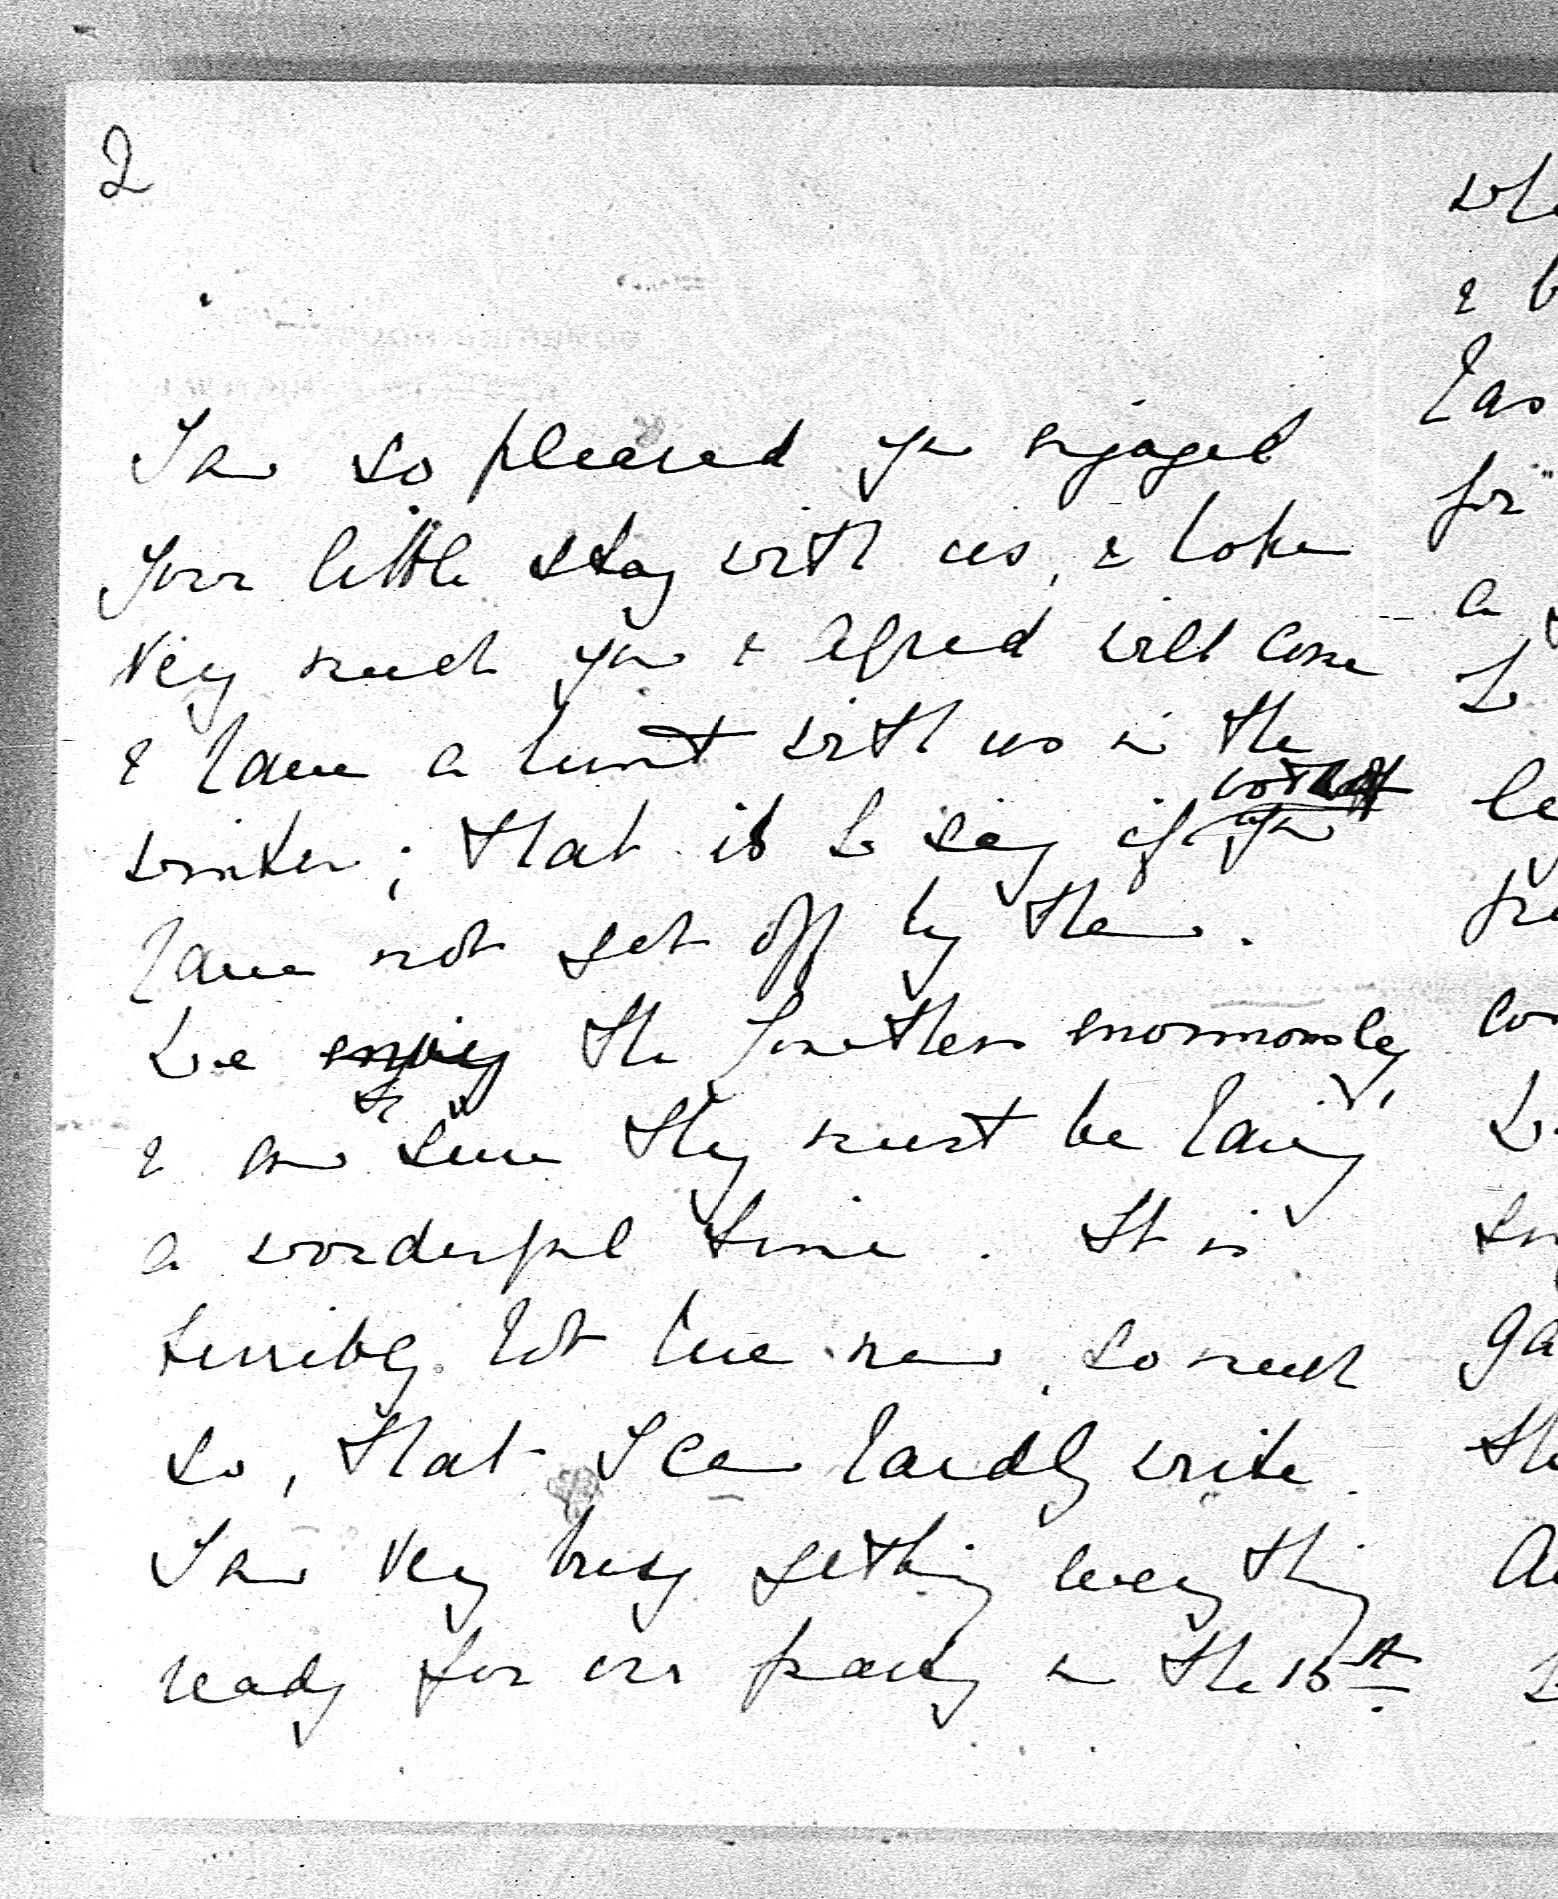 2
I am so pleased you enjoyed
your little stay with us, & hope
very much you & Alfred will come
& have a hunt with us in the
winter; that is to say if you
have not set off by then.
We envy the Jowetters enormously,
& am sure they must be having
a wonderful time. It is
terribly hot here now, so much
so, that I can hardly write.
I am very busy getting everything
ready for our party on the 15th.
& b
has
for
a
to
le
fre
con
ga
the